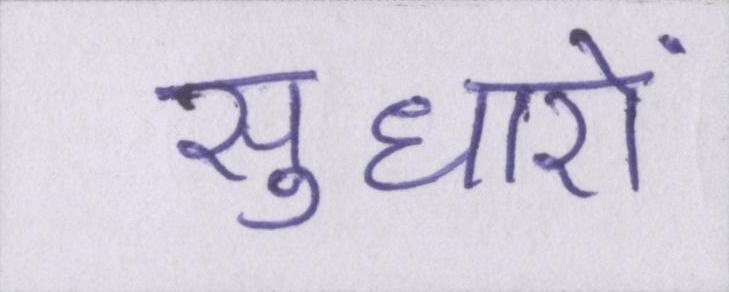 सुधारों